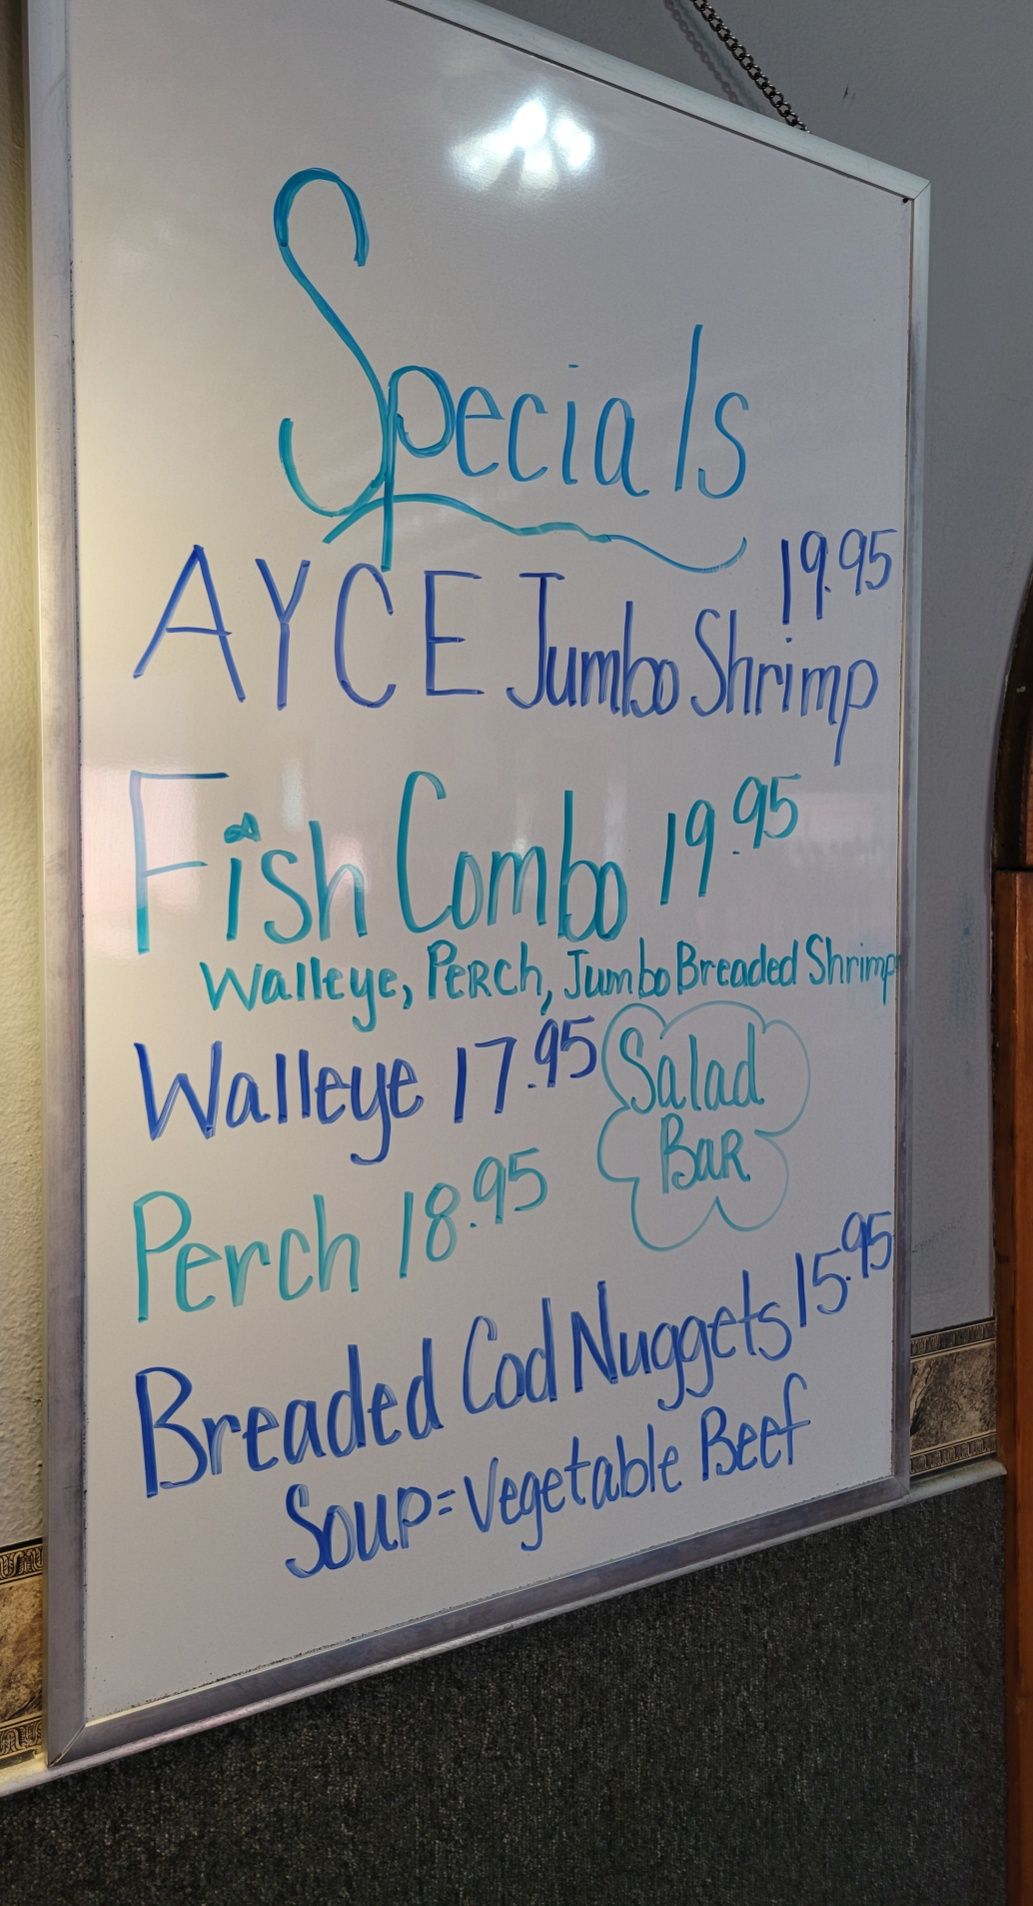 Specials
AYCE Jumbo Shrimp 19.95
Fish Combo 19.95
Walleye, PERCH, Jumbo Breaded Shrimp
Walleye 17.95
Salad
BAR
Perch 18.95
Breaded Cod Nuggets 15.95
Soup=Vegetable Beef